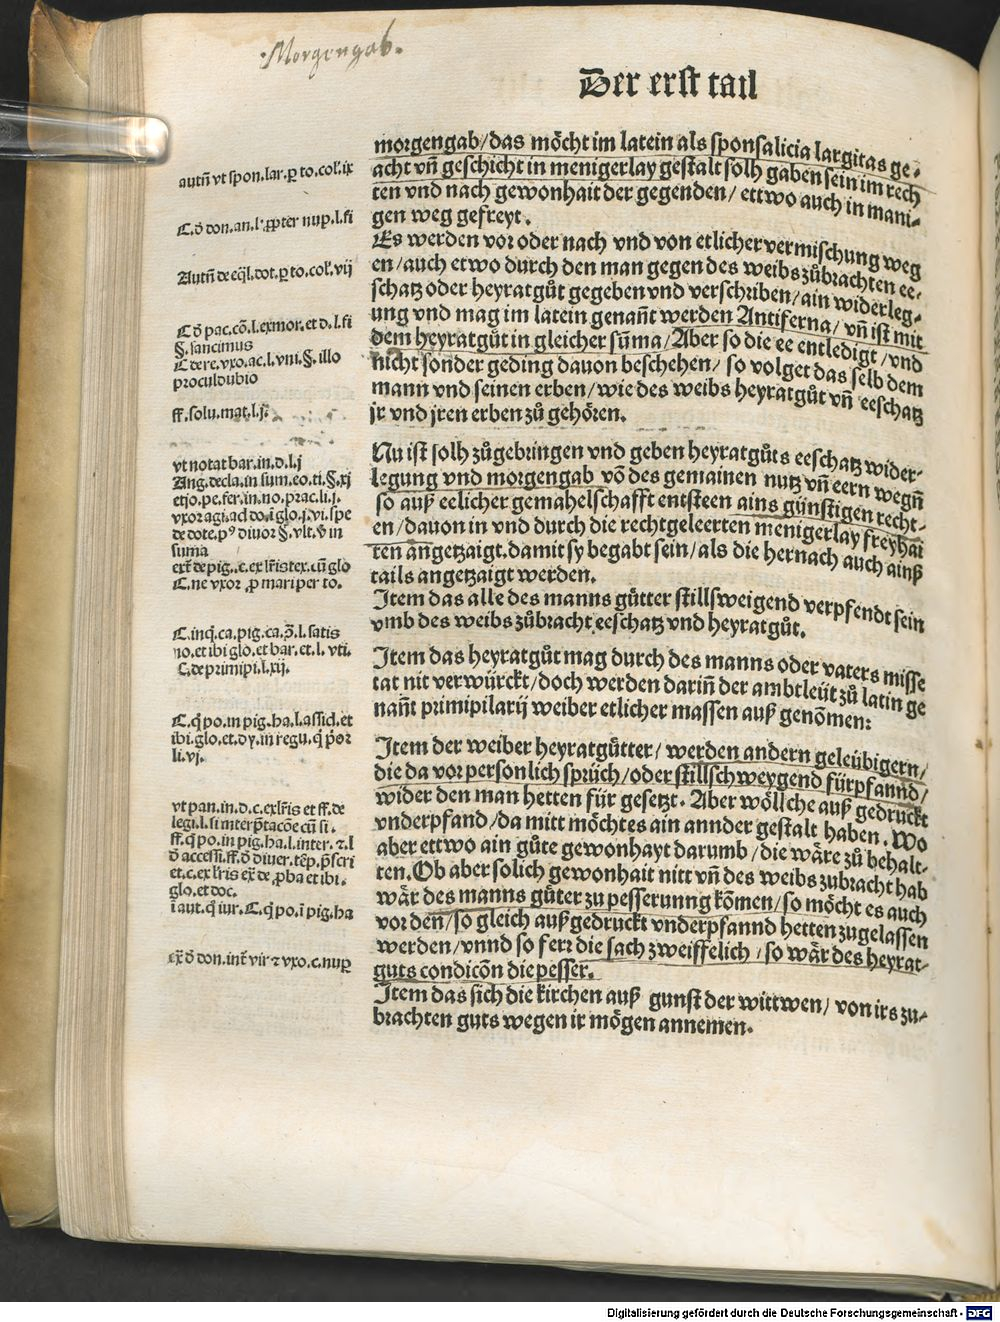 .Morgengab.
Der erst tail
morgengab/das möcht im latein als sponsalicia largitas ge-
acht vñ geschicht in menigerlay gestalt solh gaben sein im rech
ten vnd nach gewonhait der gegenden/ettwo auch in mani-
gen weg gefreyt.
Es werden vor oder nach vnd von etlicher vermischung weg
en/auch etwo durch den man gegen des weibs zůbrachten ee-
schatz oder heyratgůt gegeben vnd verschriben/ain widerleg-
ung vnd mag im latein genañt werden Antiferna/vñ ist mit
dem heyratgůt in gleicher sum̃a/Aber so die ee entledigt/vnd
nicht sonder geding dauon beschehen/so volget das selb dem
mann vnd seinen erben/wie des weibs heyratgůt vñ eeschatz
jr vnd jren erben zů gehören.
Nu ist solh zůgebringen vnd geben heyratgůts eeschatz wider-
legung vnd morgengab võ des gemainen nutz vñ eern wegñ
so auß eelicher gemahelschafft entsteen ains günstigen recht-
en/dauon in vnd durch die rechtgeleerten menigerlay freyhai
ten angetzaigt.damit sy begabt sein/als die hernach auch ainß
tails angetzaigt werden.
Item das alle des manns gůtter stillsweigend verpfendt sein
vmb des weibs zůbracht eeschatz vnd heyratgůt.
Item das heyratgůt mag durch des manns oder vaters misse
tat nit verwürckt/doch werden dariñ der ambtleüt zů latin ge
nañt primipilarij weiber etlicher massen auß genõmen:
Item der weiber heyratgůtter/werden andern geleübigern/
die da vor personlich sprüch/oder stillschweygend fürpfannd/
wider den man hetten für gesetzt. Aber wöllche auß gedruckt
vnderpfand/da mitt möchtes ain annder gestalt haben. Wo
aber ettwo ain gůte gewonhayt darumb/die wäre zů behalt-
ten. Ob aber solich gewonhait nitt vñ des weibs zubracht hab
wär des manns gůter zu pesserunng kõmen/so möcht es auch
vor den/so gleich außgedruckt vnderpfannd hetten zugelassen
werden/vnnd so ferr die sach zweiffelich/so wär des heyrat-
guts condicõn die pesser.
Item das sich die kirchen auß gunst der wittwen/von irs zu-
brachten guts wegen ir mögen annemen.
autñ vt spon.lar.ꝑ to.col'.ix
C.õ don.an.l'.ꝓpter nup.l.fi
Autñ de eq̃l.dot.ꝑ to.col'.vij
C õ pac.cõ.l.exmor.et d.l.fi
§.sancimus
C de re.vxo.ac.l.vni.§.illo
proculdubio
ff.solu.mat.l.j.
vt notat bar.in.d.l.j
Ang.decla.in sum.eo.ti.§.xj
etjo.pe.fer.in.no.prac.li.j.
vxor agi.ad do.ĩ glo.j.vi.spe
de dote.pꝰ diuor §.vlt.ꝟ in
suma
ext̃ de pig.c.ex lr̃is tex.cũ glo
C.ne vxor ꝓ mari per to.
C.inq̃.ca.pig.ca.õ.l.satis
no.et ibi glo.et bar.et.l.vti.
C.de primipi.l.xij.
C.q̃ po.in pig.ha.l.assid.et
ibi.glo.et.dy.in regu.q̃ p̃or
li.vj.
vt pan.in.d.c.exlr̃is et ff.de
legi.l.si interp̃tacõe cũ si.
ff.q̃ po.in pig.ha.l.inter.⁊.l
õ accessi.ff.õ diuer.tẽp.p̃scri
et.c.ex lr̃is ex̃ de ꝓba et ibi.
glo.et doc.
ĩ aut.q̃ iur.C.q̃ po.ĩ pig.ha
ex̃ õ don.int̃ vir ⁊ vxo.c.nuꝑ
Digitalisierung gefördert durch die Deutsche Forschungsgemeinschaft - DFG